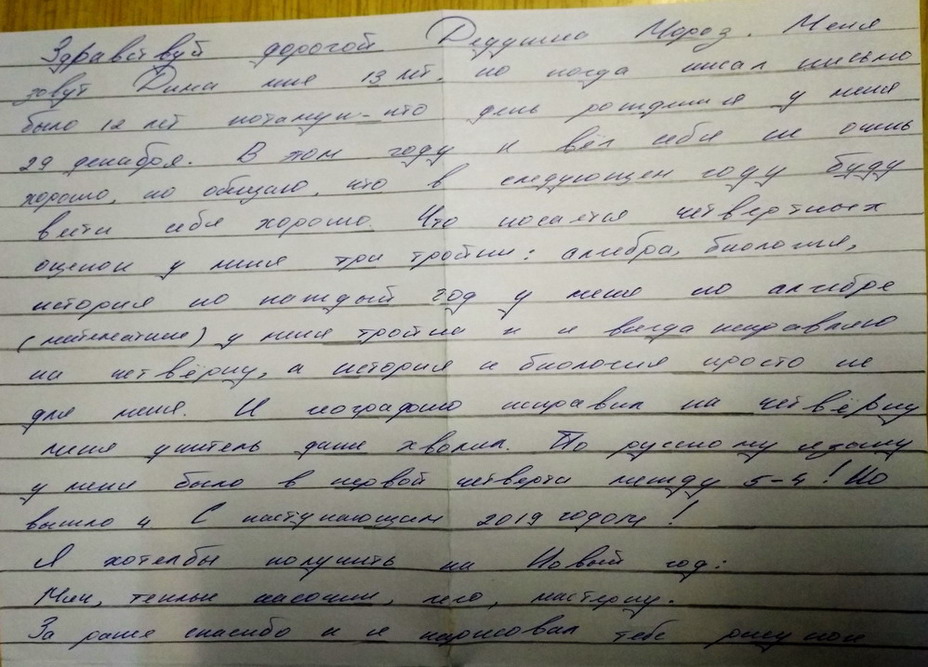 Здравствуй дорогой Дедушка Мороз. Меня
зовут Дима мне 13 лет, но когда писал письмо
было 12 лет потамуп-что день рождения у меня
29 декабря. В том году я вёл себя не очень
хорошо, но обищаю, что в следующем году буду
вести себя хорошо. Что косается четвертных
оценок у меня три тройки: алгебра, биология,
история но каждый год у меня по алгебре
(математике) у меня тройка и я всегда исправляю
на четвёрку, а история и биология просто не
для меня. И географию исправил на четвёрку
меня учитель даже хвалил. По русскому языку
у меня было в первой четверти между 5-4! Но
вышло 4 С наступающим 2019 годом!
Я хотелбы получить на Новый год:
Мяч, теплые носочки, лего,
За ранее спасибо и я нарисовал тебе рисунок